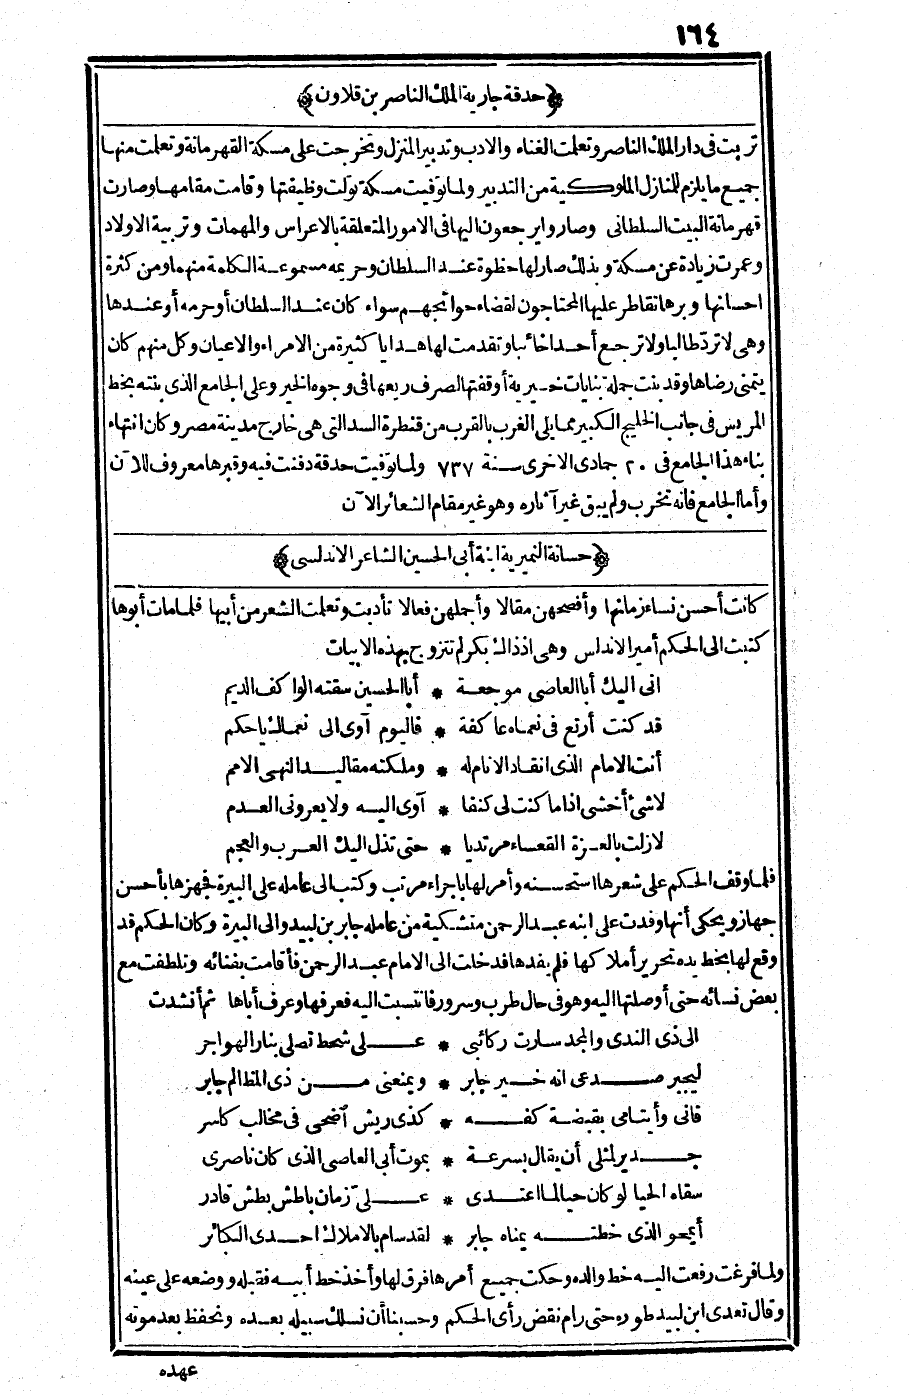 ١٦٤
﴿حدقة جارية الملك الناصر بن قلاون﴾
تربت فى دار الملك الناصر وتعلمت الغناء والادب وتدبير المنزل وتخرجت على مسكة القهرمانة وتعلمت منها
جميع ما يلزم للمنازل الملوكية من التدبير ولما توفيت مسكة تولت وظيفتها وقامت مقامها وصارت
قهرمانة البيت السلطانى وصاروا يرجعون اليها فى الامور المتعلقة بالاعراس والمهمات وتربية الاولاد
وعمرت زيادة عن مسكة وبذلك صار لها حظوة عند السلطان وحريمه مسموعة الكلمة منهما ومن كثرة
احسانها وبرها تقاطر عليها المحتاجون لقضاء حوائجهم سواء كان عند السلطان أو حرمه أو عندها
وهى لا ترد طالبا ولا ترجع أحدا خائبا وتقدمت لها هدايا كثيرة من الامراء والاعيان وكل منهم كان
يتمنى رضاها وقد بنت جملة بنايات خيرية أوقفتها لصرف ريعها فى وجوه الخير وعلى الجامع الذى بنته بخط
المريس فى جانب الخليج الكبير مما يلى الغرب بالقرب من قنطرة السد التى هى خارج مدينة مصر وكان انتهاء
بناء هذا الجامع فى ٢٠ جمادى الاخرى سنة ٧٣٧ ولما توفيت حدقة دفنت فيه وقبرها معروف للآن
وأما الجامع فانه تخرب ولم يبق غير آثاره وهو غير مقام الشعائر الآن
﴿حسانة النميرية ابنة أبى الحسين الشاعر الاندلسى﴾
كانت أحسن نساء زمانها وأفصحهن مقالا وأجملهن فعالا تأدبت وتعلمت الشعر من أبيها فلما مات أبوها
كتبت الى الحكم أمير الاندلس وهى اذ ذاك بكر لم تتزوج بهذه الابيات
انى اليك أبا العاصى موجعة * أبا الحسين سقته الواكف الديم
قد كنت أرتع فى نعماه عاكفة * فاليوم آوى الى نعماك ياحكم
أنت الامام الذى انقاد الانام له * وملكته مقاليد النهى الامم
لاشئ أخشى اذا ما كنت لى كنفا * آوى اليه ولا يعرونى العدم
لازلت بالعزة القعساء مرتديا * حتى تذل اليك العرب والعجم
فلما وقف الحكم على شعرها استحسنه وأمر لها باجراء مرتب وكتب الى عامله على البيرة فجهزها بأحسن
جهاز ويحكى أنها وفدت على ابنه عبد الرحمن متشكية من عامله جابر بن لبيد والى البيرة وكان الحكم قد
وقع لها بخط يده تحرير أملاكها فلم يفدها فدخلت الى الامام عبد الرحمن فأقامت بفنائه وتلطفت مع
بعض نسائه حتى أوصلتها اليه وهو فى حال طرب وسرور فانتسبت اليه فعرفها وعرف أباها ثم أنشدت
الى ذى الندى والمجد سارت ركائبى * على شحط تصلى بنار الهواجر
ليجبر صدعى انه خير جابر * ويمنعنى من ذى المظالم جابر
فانى وأيتامى بقبضة كفه * كذى ريش أضحى فى مخالب كاسر
جدير لمثلى أن يقال بسرعة * بموت أبى العاصى الذى كان ناصرى
سقاه الحيا لو كان حيا لما اعتدى * على زمان باطش بطش قادر
أيمحو الذى خطته يمناه جابر * لقد سام بالاملاك احدى الكبائر
ولما فرغت رفعت اليه خط والده وحكت جميع أمرها فرق لها وأخذ خط أبيه فقبله ووضعه على عينه
وقال تعدى ابن لبيد طوره حتى رام نقض رأى الحكم وحسبنا أن نسلك سبيله بعده ونحفظ بعد موته
عهده